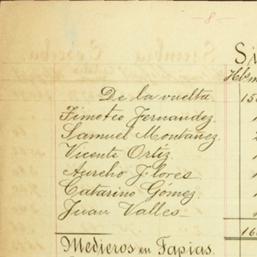 8
De la vuelta
Timoteo Fernandez
Samuel Montañez
Vicente Ortiz
Aurelio Flores
Catarino Gómez
Juan Valles
Medieros en Tapias.